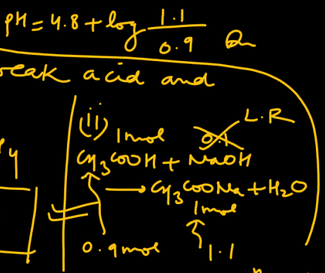 pH = 4.8 + log 1.1/0.9
weak acid and
(ii)
1mol 0.1 L.R
CH3COOH + NaOH
→ CH3COONa + H2O
1mol
0.9mol 1.1